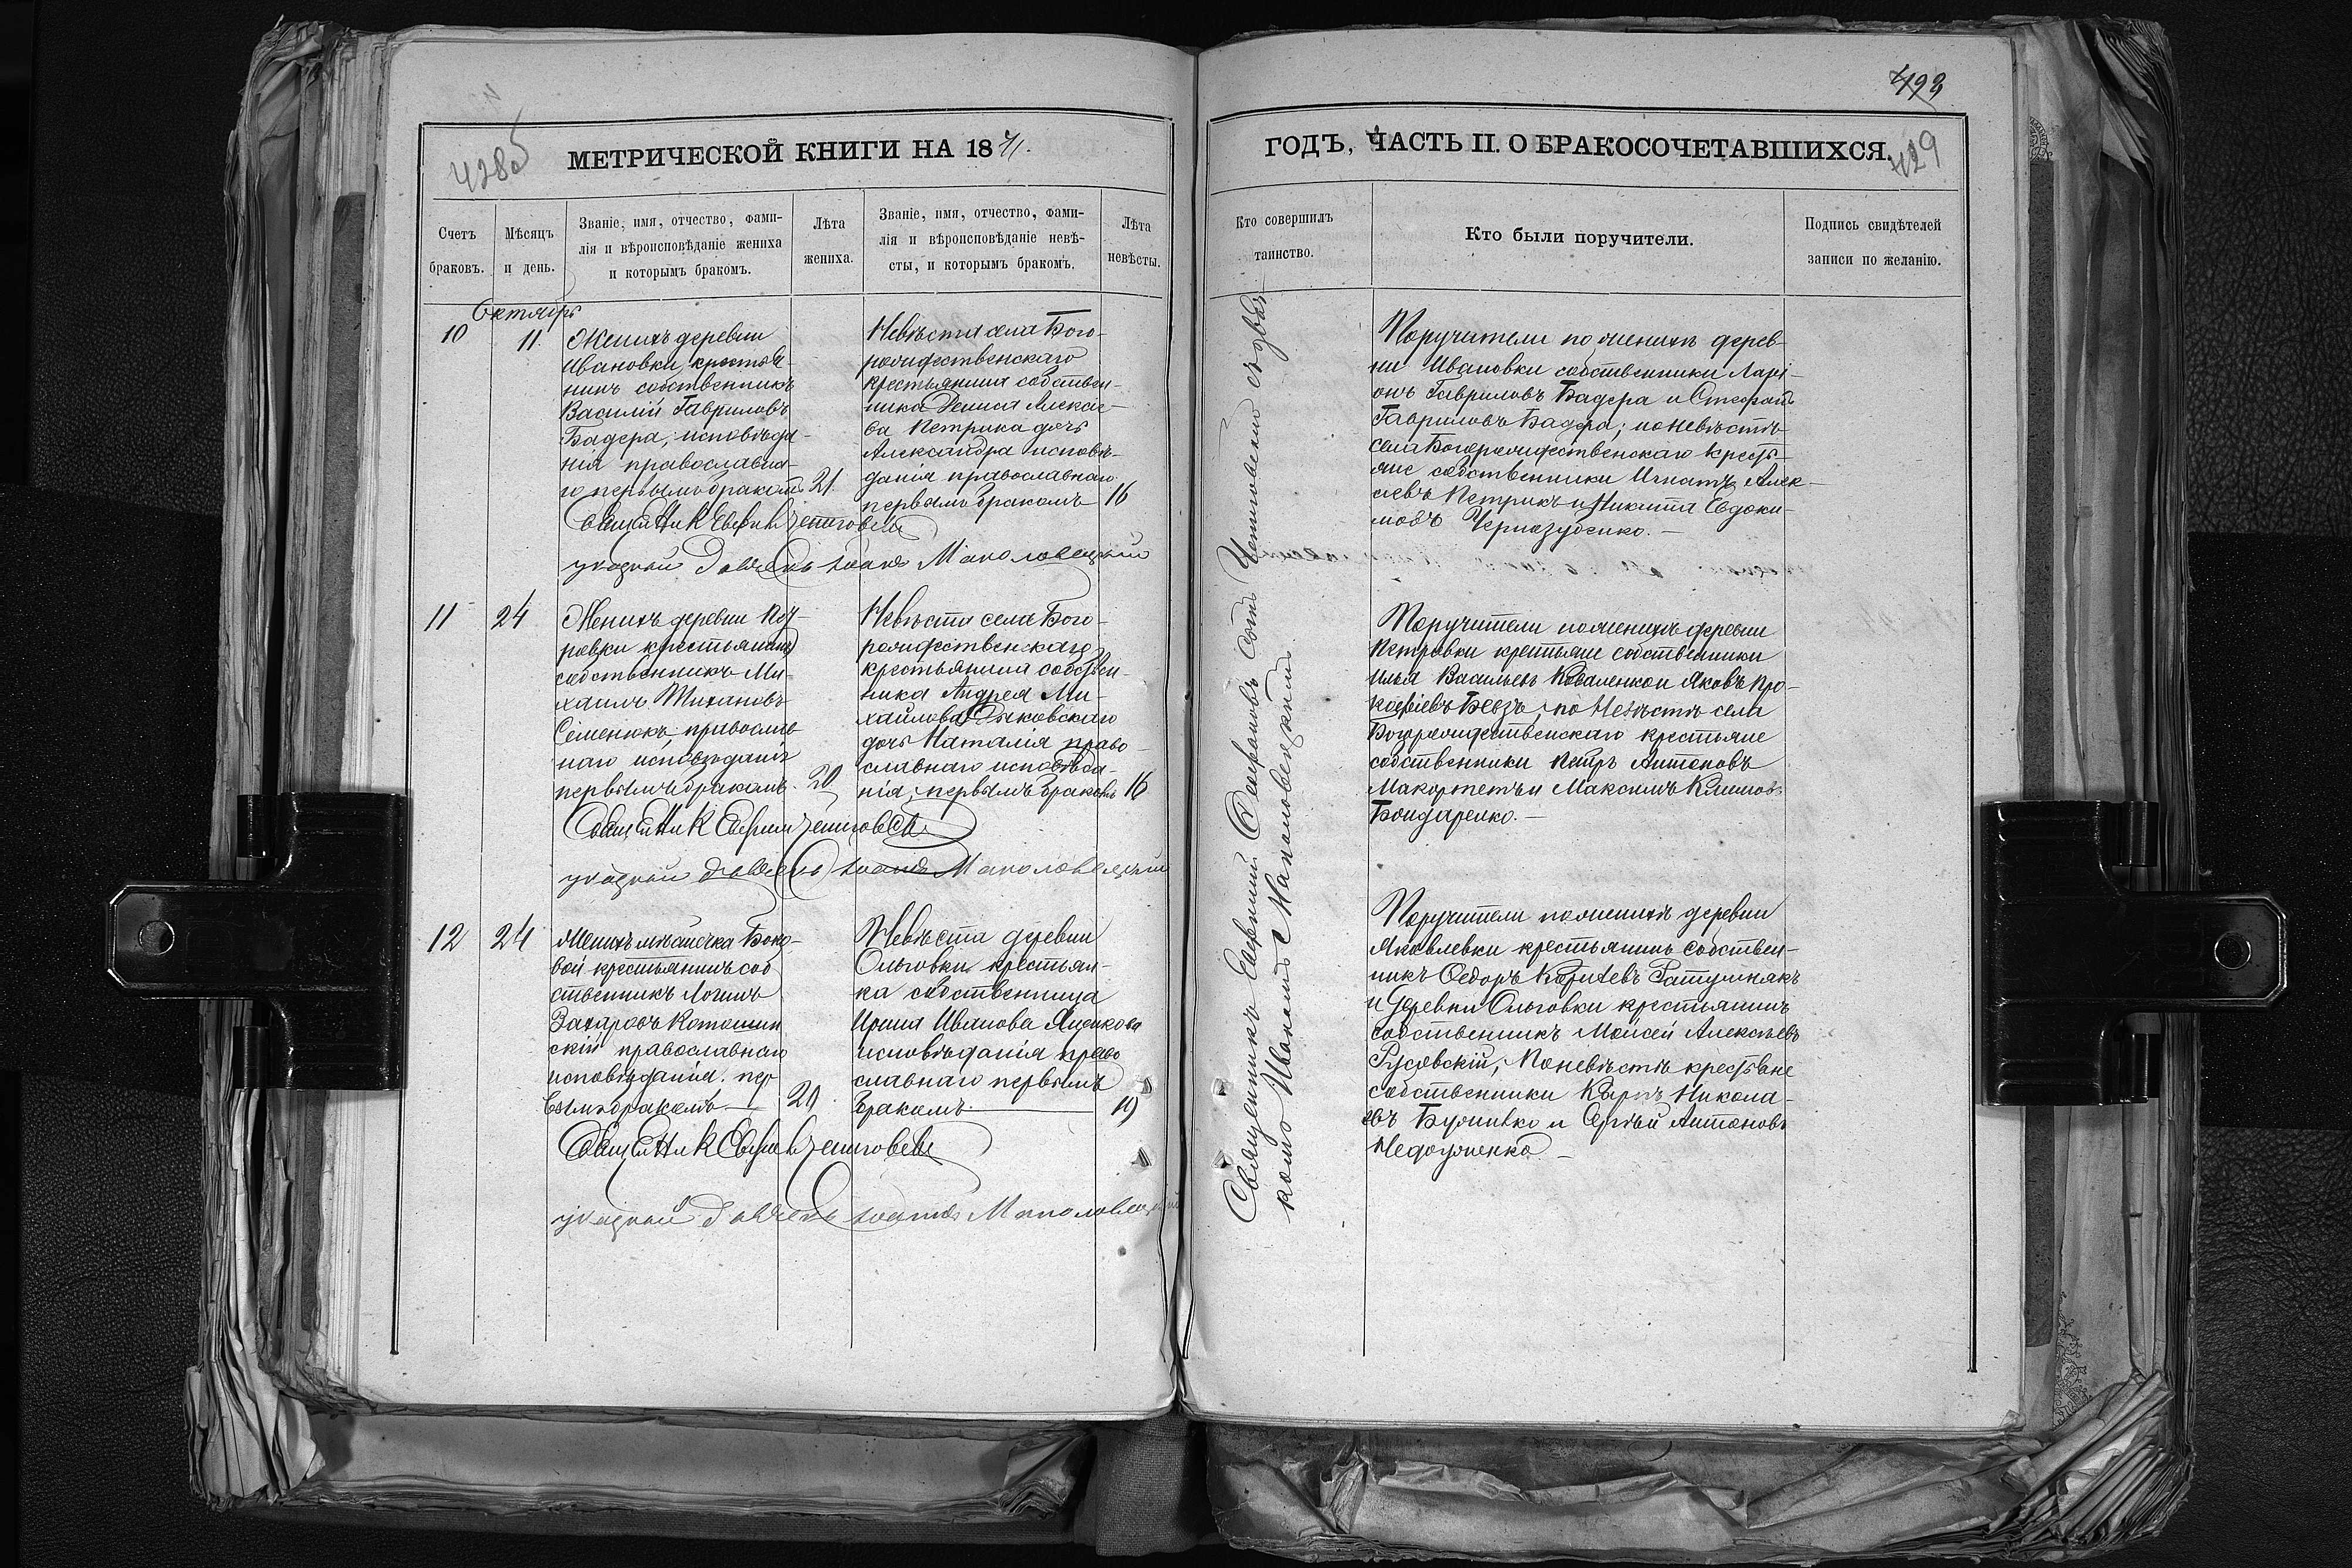 428об
МЕТРИЧЕСКОЙ КНИГИ НА 1871.
Счетъ браковъ.
Мѣсяцъ и день.
Званіе, имя, отчество, фами-
лія и вѣроисповѣданіе жениха
и которымъ бракомъ.
Лѣта жениха.
Званіе, имя, отчество, фами-
лія и вѣроисповѣданіе невѣ-
сты, и которымъ бракомъ.
Лѣта невѣсты.
Октябрь
10
11
Женихъ деревни
Ивановки, крестья-
нинъ собственникъ
Василій Гавриловъ
Бадера, исповѣда-
нія православна-
го первымъ бракомъ
21.
Невѣста села Бого-
рождественскаго
крестьянина собствен-
ника Дениса Алексѣе-
ва Петрика дочь
Александра исповѣ-
данія православнаго
первымъ бракомъ
16
Священникъ Евфимій
указный Іоаннъ Маполовецкій
11
24
Женихъ деревни Пет-
ровки крестьянинъ
собственникъ Ми-
хаилъ
Семенюкъ, православ-
наго исповѣданія
первымъ бракомъ.
20
Невѣста села Бого-
рождественскаго
крестьянина собствен-
ника Андрея Ми-
хайлова Дяковскаго
дочь Наталія право-
славнаго исповѣда-
нія, первымъ бракомъ
16
Священникъ Евфимій
указный Іоаннъ Маполовецкій
12
24
Женихъ мѣстечка Боко-
вой крестьянинъ соб
ственникъ Логинъ
Захаровъ
скій православнаго
исповѣданія. пер
вымъ бракомъ.—
Невѣста деревни
Ольговки крестьян-
ка собственница
Ирина Иванова Яценкова
исповѣданія право
славнаго первымъ
бракомъ
19
Священникъ Евфимій
указный Іоаннъ Маполовецкій
429
ГОДЪ, ЧАСТЬ II. О БРАКОСОЧЕТАВШИХСЯ.
Кто совершилъ
таинство.
Кто были поручители.
Подпись свидѣтелей
записи по желанію.
Священникъ Евфимій
Иваномъ Маполовецкимъ.
Поручители по женихѣ дерев-
ни Ивановки собственники Ларі-
онъ Гавриловъ Бадера и Стефанъ
Гавриловъ Бадера; по невѣстѣ
села Богорождественскаго крестья-
не собственники Игнатъ Алек-
сѣевъ Петрикъ и Никита Евдоки-
мовъ Чернозубенко.—
Поручители по женихѣ деревни
Петровки крестьяне собственники
Илья Васильевъ Коваленко и Яковъ Про-
кофіевъ Бевзъ, по Невѣстѣ села
Богорождественскаго крестьяне
собственники Петръ Антоновъ
Макортетъ и Максимъ Климовъ
Бондаренко.—
Поручители по женихѣ деревни
Яковлевки крестьянинъ собствен-
никъ Ѳедоръ Ратушнякъ
и деревни Ольговки крестьянинъ
собственникъ Моисей Алексѣевъ
Русовскій, По невѣстѣ крестьяне
собственники Карпъ Никола-
евъ и Сергѣй Антоновъ